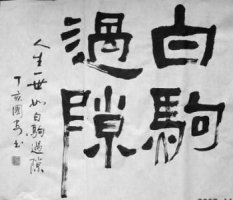 白駒
過隙
人生一世如白駒過隙
丁亥國安书